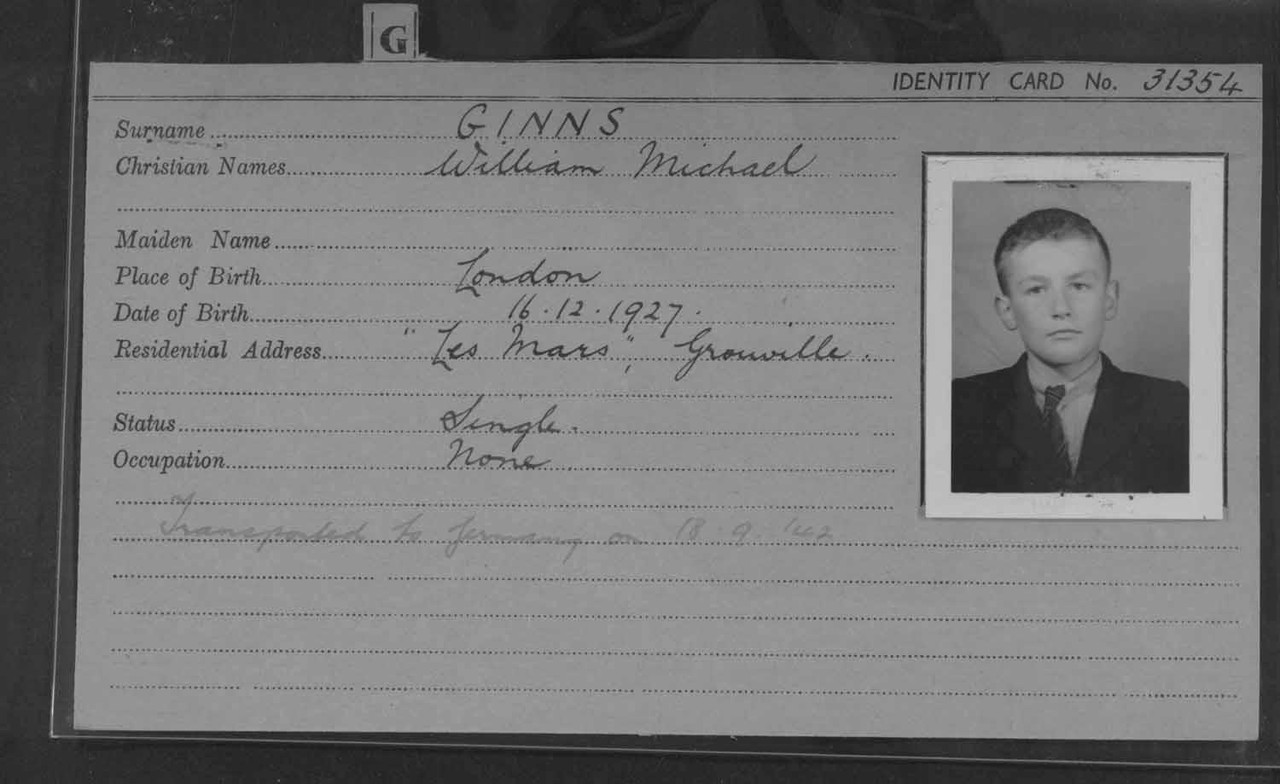 G
IDENTITY CARD No. 31354
Surname GINNS
Christian Names William Michael
Maiden Name
Place of Birth London
Date of Birth 16.12.1927.
Residential Address "Les Mars", Grouville.
Status Single.
Occupation None
Transported to Germany on 18.9.'42